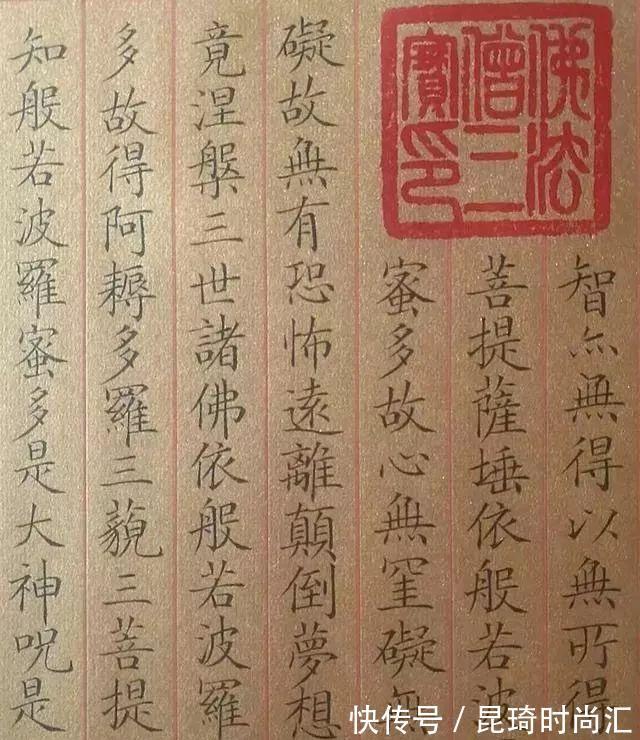 佛法
僧三
寶印
智亦無得以無所得
菩提薩埵依般若波
蜜多故心無罣礙無
礙故無有恐怖遠離顛倒夢想
竟涅槃三世諸佛依般若波羅
多故得阿耨多羅三藐三菩提
知般若波羅蜜多是大神呪是
快传号 / 昆琦时尚汇